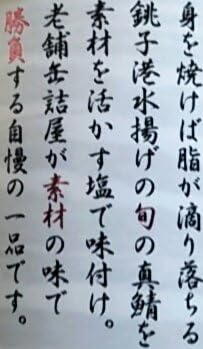 身を焼けば脂が滴り落ちる
銚子港水揚げの旬の真鯖を
素材を活かす塩で味付け。
老舗缶詰屋が素材の味で
勝負する自慢の一品です。